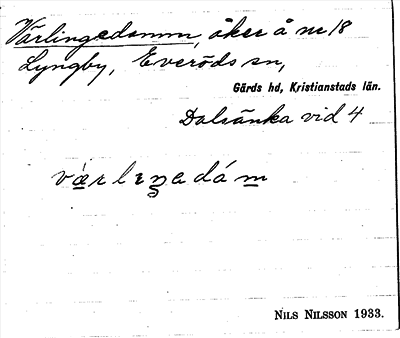 Värlingedamm, åker å nr 18
Lyngby, Everöds sn,
Gärds hd, Kristianstads län.
Dalsänka vid 4
værlıŋedám
NILS NILSSON 1933.